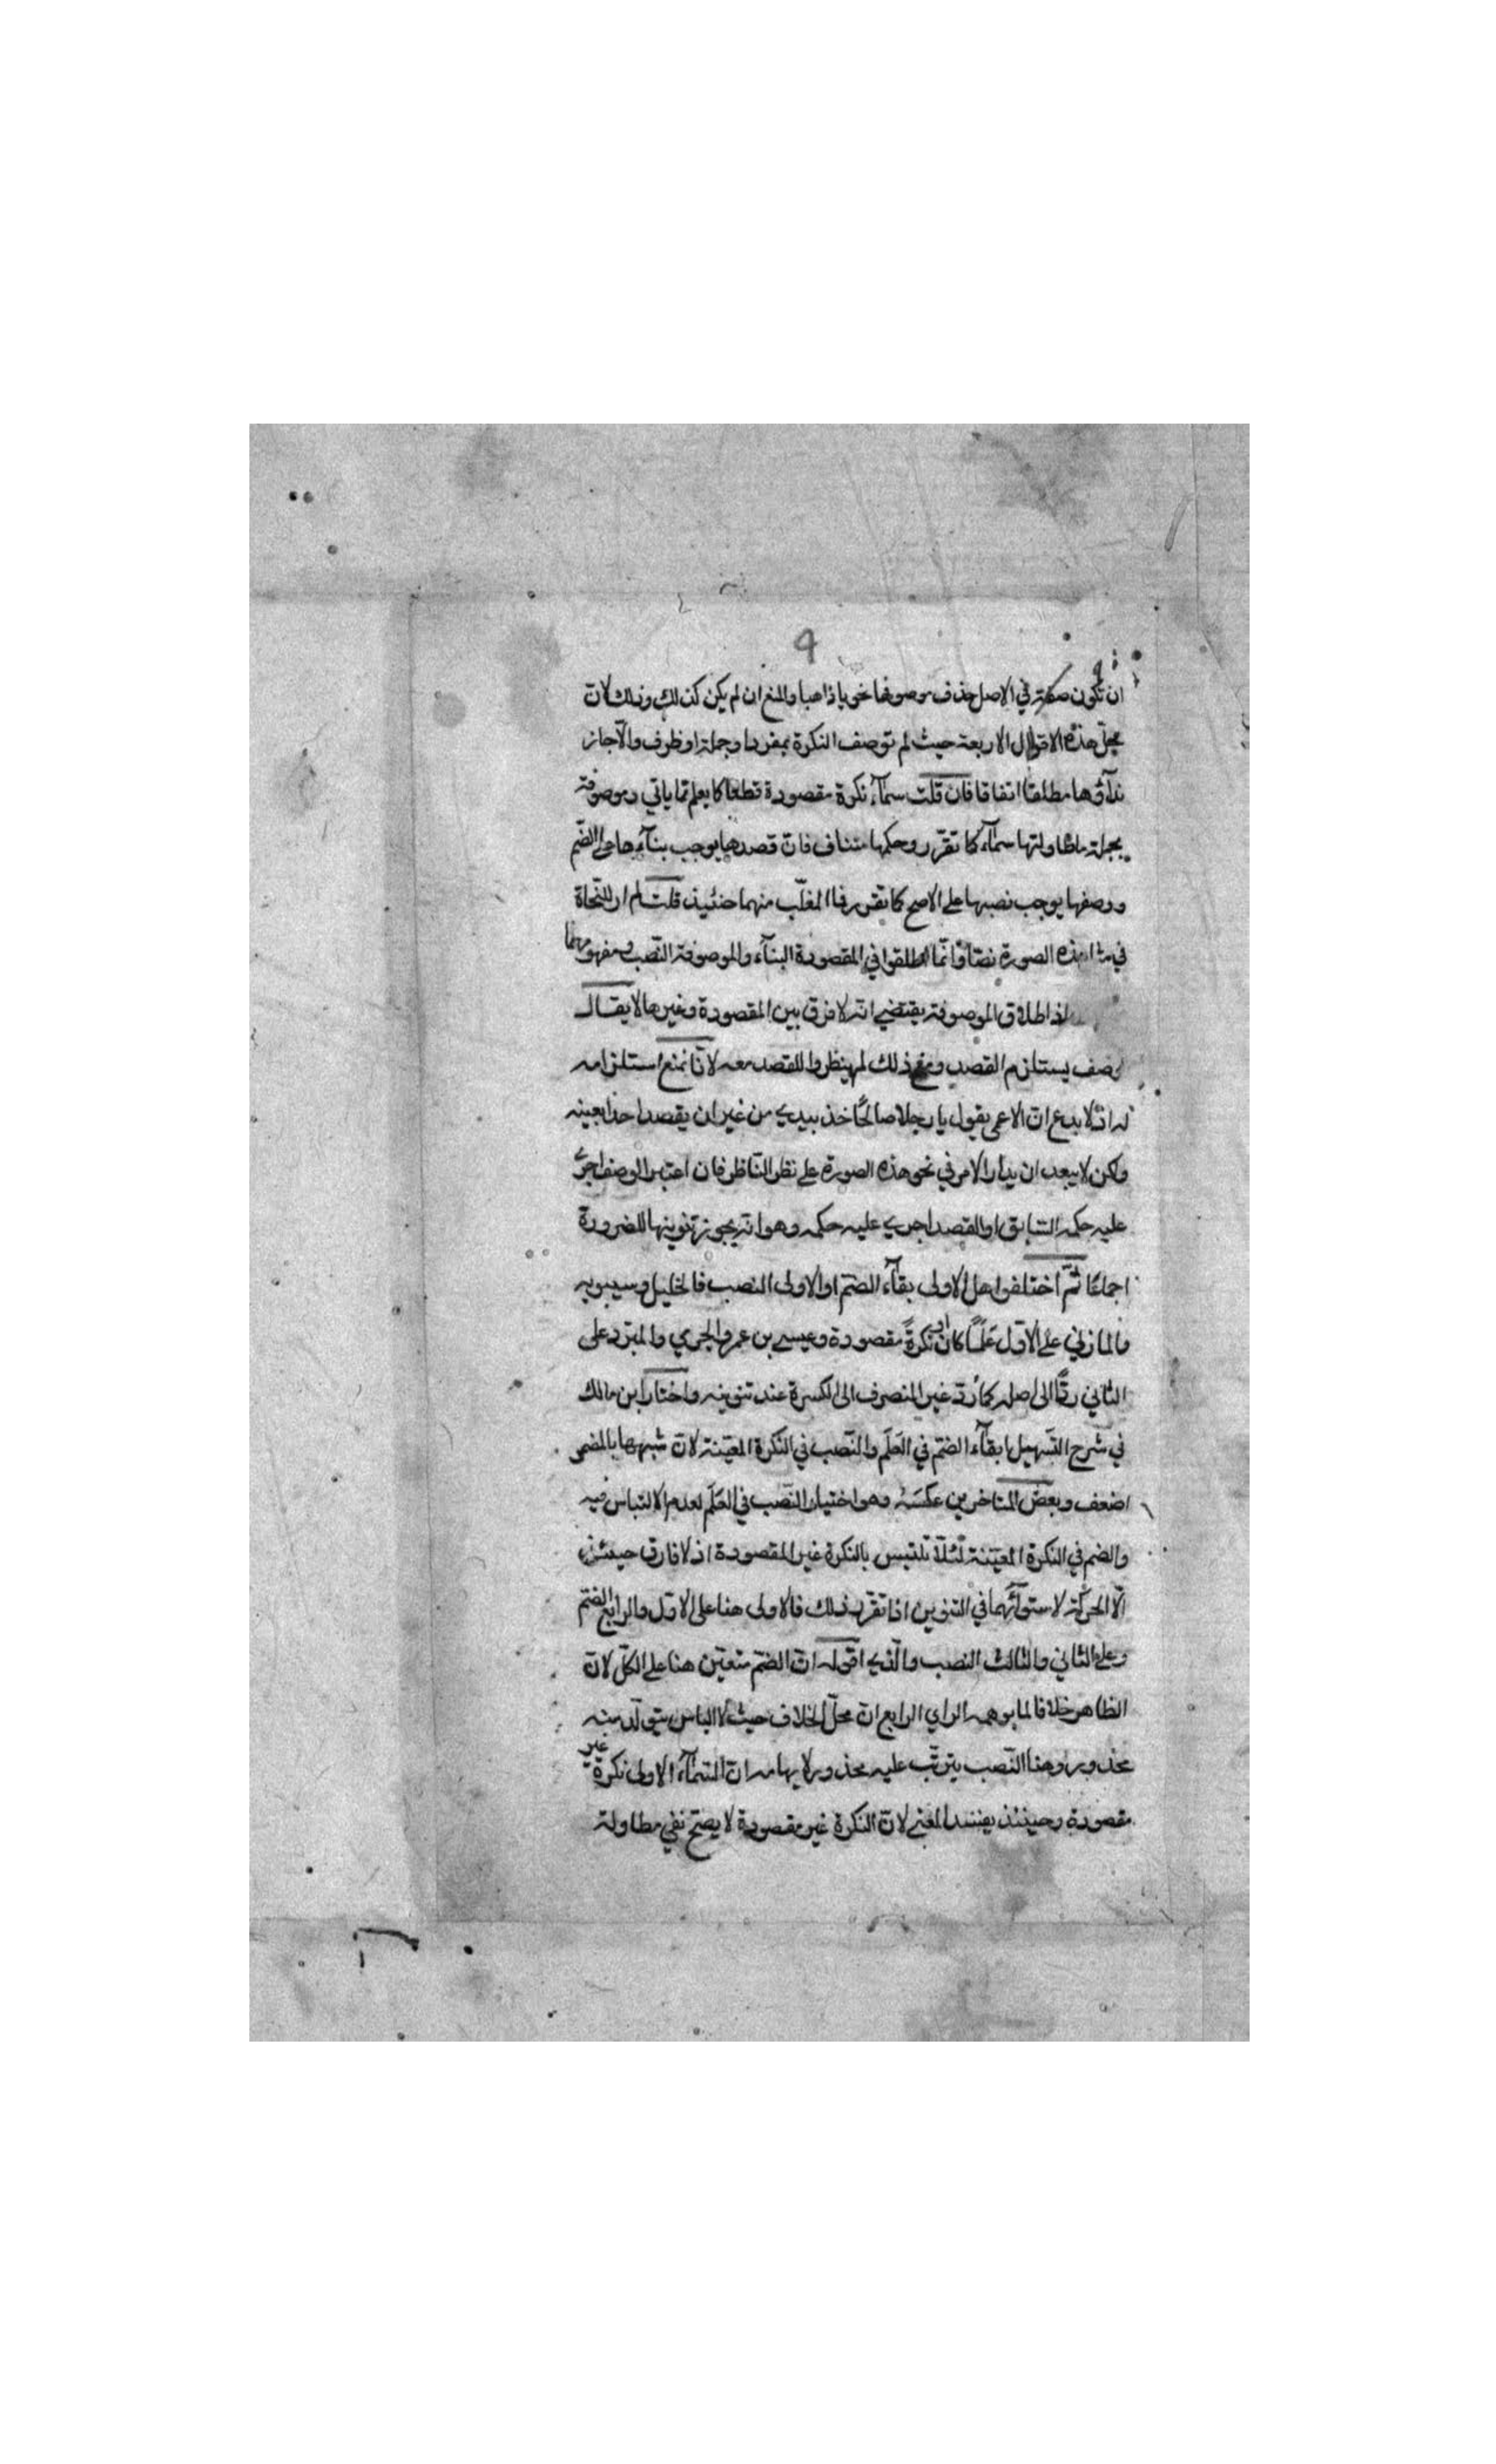 9
ان تكون صفة في الاصل حذف موصوفها نحو يا ذاهبا والمنع ان لم يكن كذلك وذلك لانّ
محلّ هذه الاقوال الاربعة حيث لم توصف النكرة بمفرد او جملة او ظرف والّا جاز
نداؤها مطلقا اتفاقا فان قلت سمآء نكرة مقصودة قطعا كما يعلم ممّا ياتي وموصوفة
بجملة ما طاولتها سمآء كما تقرّر وحكمها متناف فانّ قصدها يوجب بنآءها على الضّم
ووصفها يوجب نصبها على الاصح كما تقرر فما المغلّب منهما حنئيذ قلت لم ار للنّحاة
في مثل هذه الصورة نصّا وانّما اطلقوا في المقصودة البنآء والموصوفة النّصب ومفهومهما
اذ اطلاق الموصوفة يقتضي انّه لا فرق بين المقصودة وغيرها لا يقال
الوصف يستلزم القصد ومع ذلك لم ينظروا للقصد معه لانّا نمنع استلزامه
له اذ لا بدع انّ الاعمى يقول يا رجلا صالحًا خذ بيدي من غير ان يقصد احدا بعينه
ولكن لا يبعد ان يدار الامر في نحو هذه الصورة على نظر النّاظر فان اعتبر الوصف اجرى
عليه حكمه السّابق او القصد اجري عليه حكمه وهو انّه يجوز تنوينها للضرورة
اجماعًا ثمّ اختلفوا هل الاولى بقآء الضّم او الاولى النصب فالخليل وسيبويه
والمازني على الاوّل عَلَمًا كان او نكرةً مقصودة وعيسى بن عمر والجرمي والمبرّد على
الثاني ردًّا الى اصله كما رُدّ غير المنصرف الى الكسرة عند تنوينه واختار ابن مالك
في شرح التّسهيل ابقآء الضّم في العَلَم والنّصب في النّكرة المعيّنة لانّ شبهها بالمضمر
اضعف وبعض المتاخرين عكسَهُ وهو اختيار النّصب في العَلَم لعدم الالتباس فيه
والضم في النكرة المعيّنة لئلّا تلتبس بالنكرة غير المقصودة اذ لا فارق حينئذ
الّا الحركة لاستوآئهما في التنوين اذا تقرّر ذلك فالاولى هنا على الاوّل والرابع الضّم
وعلى الثاني والثالث النصب والّذي اقوله انّ الضّم متعيّن هنا على الكلّ لانّ
الظاهر خلافا لما يوهمه الراي الرابع انّ محلّ الخلاف حيث لا الباس يتولّد منه
محذور وهنا النّصب يترتّب عليه محذور لايهامه انّ السّمآء الاولى نكرة غير
مقصودة وحينئذ يفسد المعنى لانّ النّكرة غير مقصودة لا يصحّ نفي مطاولة